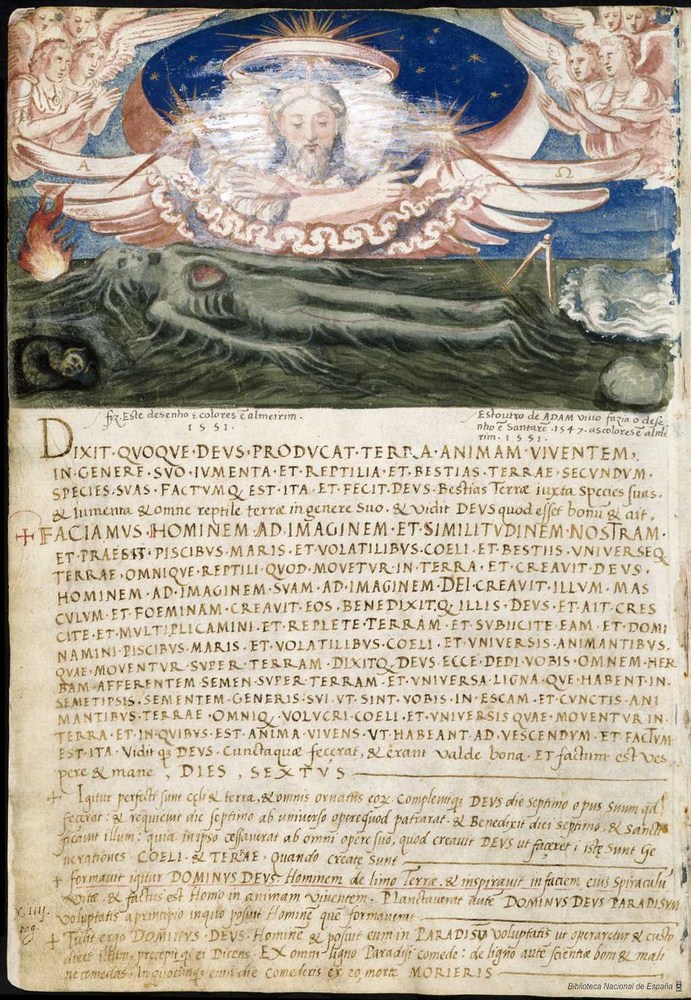 A
Ω
fiz. Este desenho & colores ẽ almeirim.
1551.
Estoutro de ADAM vivo fazia o dese
nho ẽ Santarẽ 1547. as colores ẽ almei
rim. 1551.
DIXIT·QVOQVE·DEVS·PRODVCAT·TERRA·ANIMAM·VIVENTEM·
IN·GENERE·SVO·IVMENTA·ET·REPTILIA·ET·BESTIAS·TERRAE·SECVNDVM·
SPECIES·SVAS·FACTVMQ·EST·ITA·ET·FECIT·DEVS·Bestias Terræ iuxta species suas·
& iumenta & omne reptile terræ in genere suo. & vidit DEVS quod esset bonũ & ait.
FACIAMVS·HOMINEM·AD·IMAGINEM·ET·SIMILITVDINEM·NOSTRAM·
ET·PRAESIT·PISCIBVS·MARIS·ET·VOLATILIBVS·COELI·ET·BESTIIS·VNIVERSEQ
TERRAE·OMNIQVE·REPTILI·QVOD·MOVETVR·IN·TERRA·ET·CREAVIT·DEVS·
HOMINEM·AD·IMAGINEM·SVAM·AD·IMAGINEM·DEI·CREAVIT·ILLVM·MAS
CVLVM·ET·FOEMINAM·CREAVIT·EOS·BENEDIXITQ·ILLIS·DEVS·ET·AIT·CRES
CITE·ET·MVLTIPLICAMINI·ET·REPLETE·TERRAM·ET·SVBIICITE·EAM·ET·DOMI
NAMINI·PISCIBVS·MARIS·ET·VOLATILIBVS·COELI·ET·VNIVERSIS·ANIMANTIBVS·
QVAE·MOVENTVR·SVPER·TERRAM·DIXITQ·DEVS·ECCE·DEDI·VOBIS·OMNEM·HER
BAM·AFFERENTEM·SEMEN·SVPER·TERRAM·ET·VNIVERSA·LIGNA·QVE·HABENT·IN·
SEMETIPSIS·SEMENTEM·GENERIS·SVI·VT·SINT·VOBIS·IN·ESCAM·ET·CVNCTIS·ANI
MANTIBVS·TERRAE·OMNIQ·VOLVCRI·COELI·ET·VNIVERSIS·QVAE·MOVENTVR·IN·
TERRA·ET·IN·QVIBVS·EST·ANIMA·VIVENS·VT·HABEANT·AD·VESCENDVM·ET·FACTVM
EST·ITA· Vidit q₃ DEVS· Cuncta quæ fecerat, & erant valde bona· ET factum est ves
pere & mane, DIES, SEXTVS
+ Igitur perfecti sunt cęli & terra, & omnis ornatus eoꝝ. Complevitq₃ DEVS die septimo opus suum qđ
fecerat: & requievit die septimo ab universo opere quod patrarat. & Benedixit diei septimo, & sancti
ficavit illum: quia in ipso cessaverat ab omni opere suo, quod creavit DEVS ut faceret: istę sunt Ge
nerationes COELI· & TERAE· Quando create sunt
+ formavit igitur DOMINVS DEVS· Hominem de limo Terræ, & inspiravit in faciem eius Spiraculũ
Vitæ, & factus est Homo in animam viventem. Plantaverat autẽ DOMINVS DEVS PARADISVM
Voluptatis a principio in quo posuit Hominẽ quẽ formaverat
+ Tulit ergo DOMINVS·DEVS· Hominẽ & posuit eum in PARADISV̄ Voluptatis ut operaretur & custo
diret illum, precepitq₃ ei Dicens. EX omni ligno Paradisi comede: de ligno autẽ scientiæ boni & mali
ne comedas. In quocunq₃ enim die comederis ex eo morte MORIERIS
Biblioteca Nacional de España